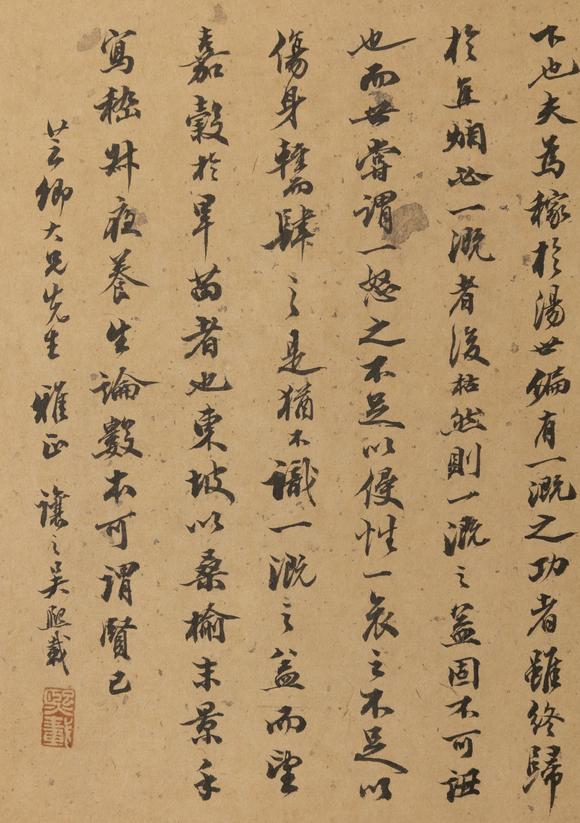 下也夫為稼於湯世偏有一溉之功者雖終歸
於焦爛必一溉者後枯然則一溉之益固不可誣
也而世嘗謂一怒之不足以侵性一哀之不足以
傷身輕而肆之是猶不識一溉之益而望
嘉穀於旱苗者也東坡以桑榆末景手
寫嵇叔夜養生論數本可謂賢已
芸卿大兄先生 雅正 讓之吳熙載
熙載